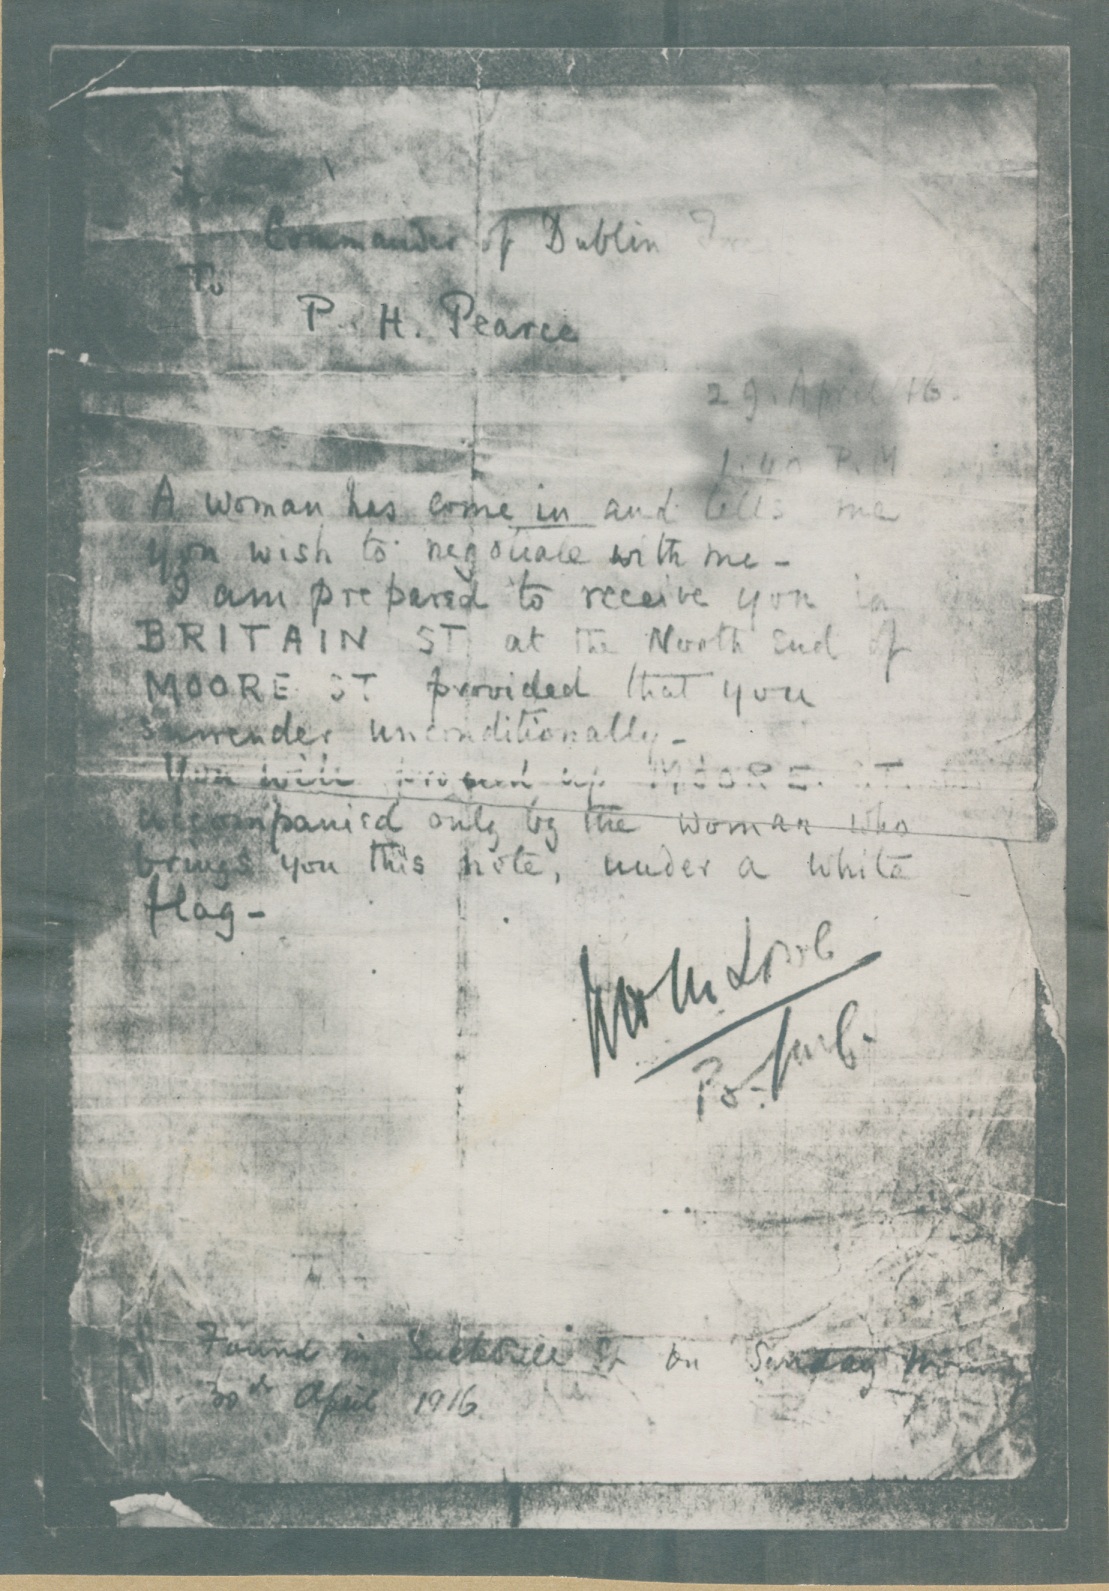 From
Commander of Dublin Forces
To
P. H. Pearce
29. April 16.
1.40 P.M
A woman has come in and tells me
you wish to negotiate with me -
I am prepared to receive you in
BRITAIN ST at the North End of
MOORE ST provided that you
surrender unconditionally -
You will proceed up MOORE ST
accompanied only by the woman who
brings you this note, under a white
flag -
W M Lowe
B. Genl.
Found in Sackville St on Sunday Morning
30th April 1916